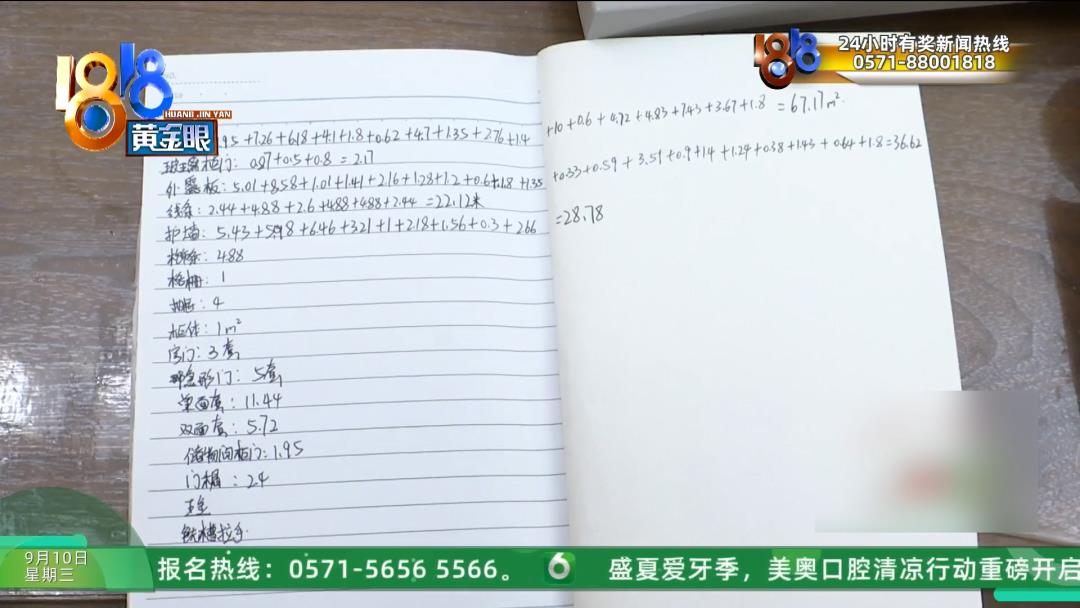 1818
HUANG JIN YAN
黄金眼
24小时有奖新闻热线
0571-88001818
.95+7.26+6.18+4.1+1.8+0.62+4.7+1.35+2.76+1.4
+10+0.6+4.72+4.83+7.43+3.67+1.8 =67.17m²
玻璃柜门: 0.87+0.5+0.8=2.17
外露板: 5.01+8.58+1.01+1.41+2.16+1.28+1.2+0.6+1.8+1.35
+0.33+0.59+3.51+0.9+1.4+1.24+0.38+1.43+0.64+1.8=36.62
线条: 2.44+4.88+2.6+4.88+4.88+2.44=22.12米
护墙: 5.43+5.98+6.46+3.21+1+2.18+1.56+0.3+2.66
=28.78
488
格栅: 1
抽屉: 4
柜体: 1m²
房门: 3套
隐形门: 5套
单面套: 11.44
双面套: 5.72
储物间柜门: 1.95
门楣: 24
五金
铁槽拉手
9月10日
星期三
报名热线：0571-5656 5566。
6
盛夏爱牙季，美奥口腔清凉行动重磅开启